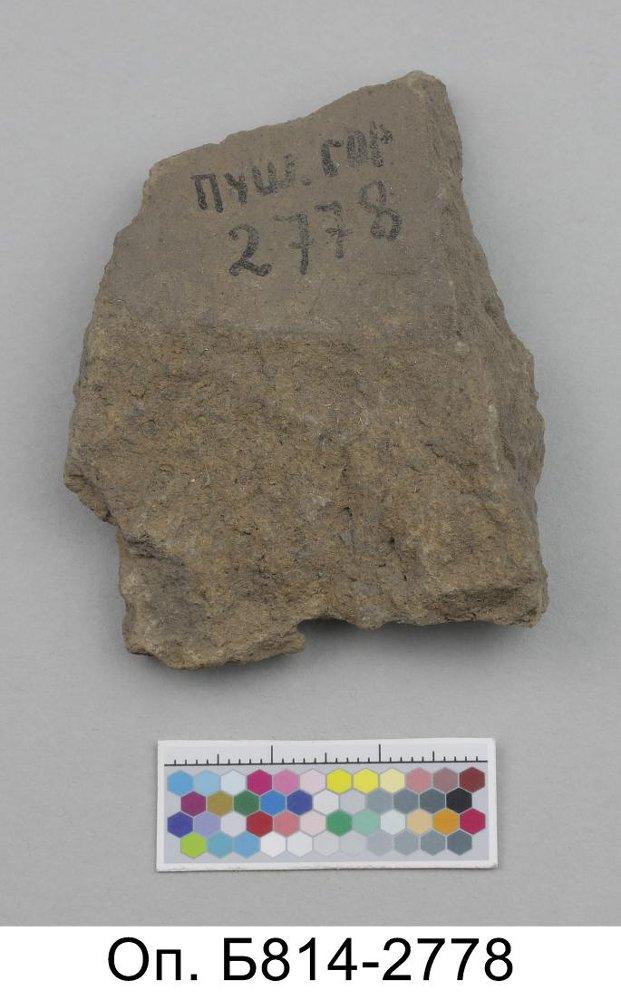 ПУШ. ГОР
2778
Оп. Б814-2778